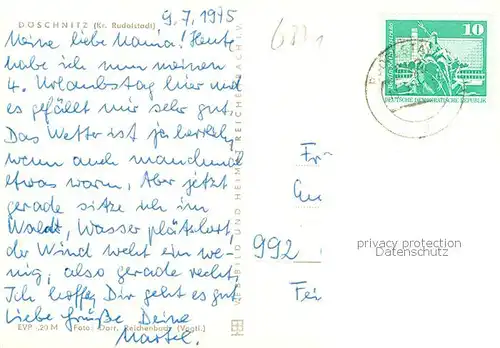 DÖSCHNITZ (Kr. Rudolstadt)
9.7.1975
Meine liebe Mama! Heute
habe ich nun meinen
4. Urlaubstag hier und
es gefällt mir sehr gut.
Das Wetter ist ja herrlich,
wenn auch manchmal
etwas warm, Aber jetzt
gerade sitze ich im
Wald, Wasser plätschert,
der Wind weht ein we-
nig, also gerade recht,
Ich hoffe, Dir geht es gut
Liebe Grüße Deine
EVP -,20 M Foto: Darr, Reichenbach (Vogtl.)
BILD UND HEIMAT REICHENBACH i. V.
10
DEUTSCHE DEMOKRATISCHE REPUBLIK
992
privacy protection
Datenschutz